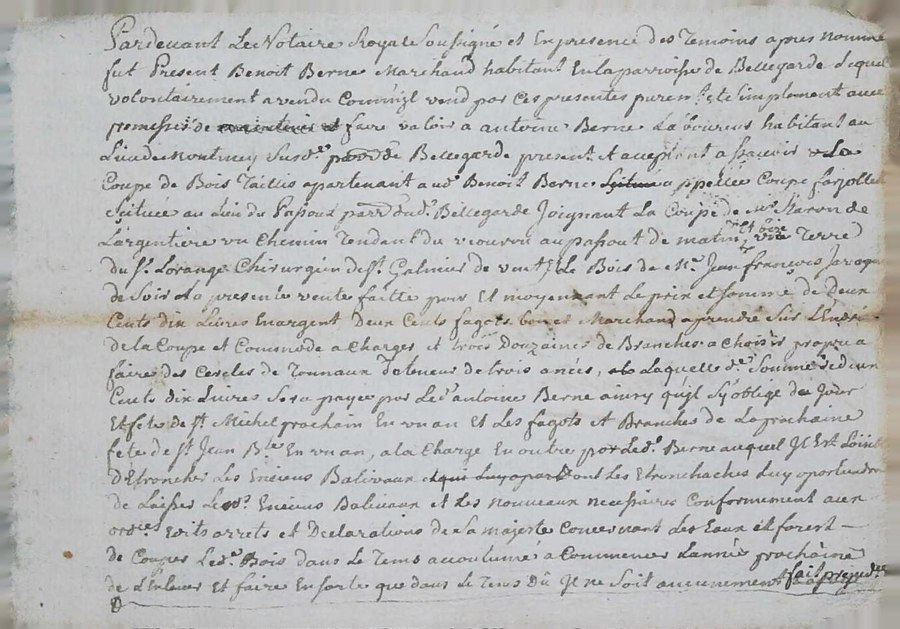 Pardevant Le Notaire Royal Soussigné et En presence des Temoins apres nommé
fut Present Benoit Berne Marchand habitant En la parroisse de Bellegarde Lequel
volontairement a vendu Comm'il vend par ces presentes purem.t et simplement avec
promesses de faire valoir a antoine Berne Laboureur habitant au
Lieu de Montmey Susd.e parr de Bellegarde present et acceptant a sçavoir La
Coupe de Bois Taillis apartenant aud. Benoit Berne appellée Coupe farjolle
Scituée au Lieu du Pasour parr dud. Bellegarde Joignant La Coupe de Mr Maron de
Largentiere un Chemin Tendant du au de matin et bize une Terre
du Sr. Lorange Chirurgien de St. Galmier de vent, Le Bois de Mr. Jean françois
de Soir La presente vente faitte pour Et moyennant Le prix et Somme de Deux
Cents dix Livres En argent, Deux Cents fagots bon et Marchand a prendre Sur L'
de la Coupe et Commode a Charger et trois Douzaines de Branches a Choisir propre a
faire des Cercles de Tonnaux d'aleneur de trois anées, Laquelle d.e Somme de deux
Cents dix Livres Sera payée par Led. antoine Berne ainsy qu'il S'y oblige du Jour
Et fete de St. Michel prochain En un an Et Les fagots et Branches de La prochaine
fete de St. Jean B.te En un an, a la Charge En outre par Led. Berne auquel Il Est
D'Etroncher Les Enciens Baliveaux dont Les Etronchaches Luy
de Laisser Lesd. Enciens Baliveaux et Les nouveaux necessaires Conformement aux
ord.ces Edits arrets et Declarations de sa majesté Concernant Les Eaux et forest
de Couper Led. Bois dans Le Tems accoutumé a Commencer L'année prochaine
de L'Enlever Et faire En sorte que dans Le Tems Dû Il ne Soit aucunement fait